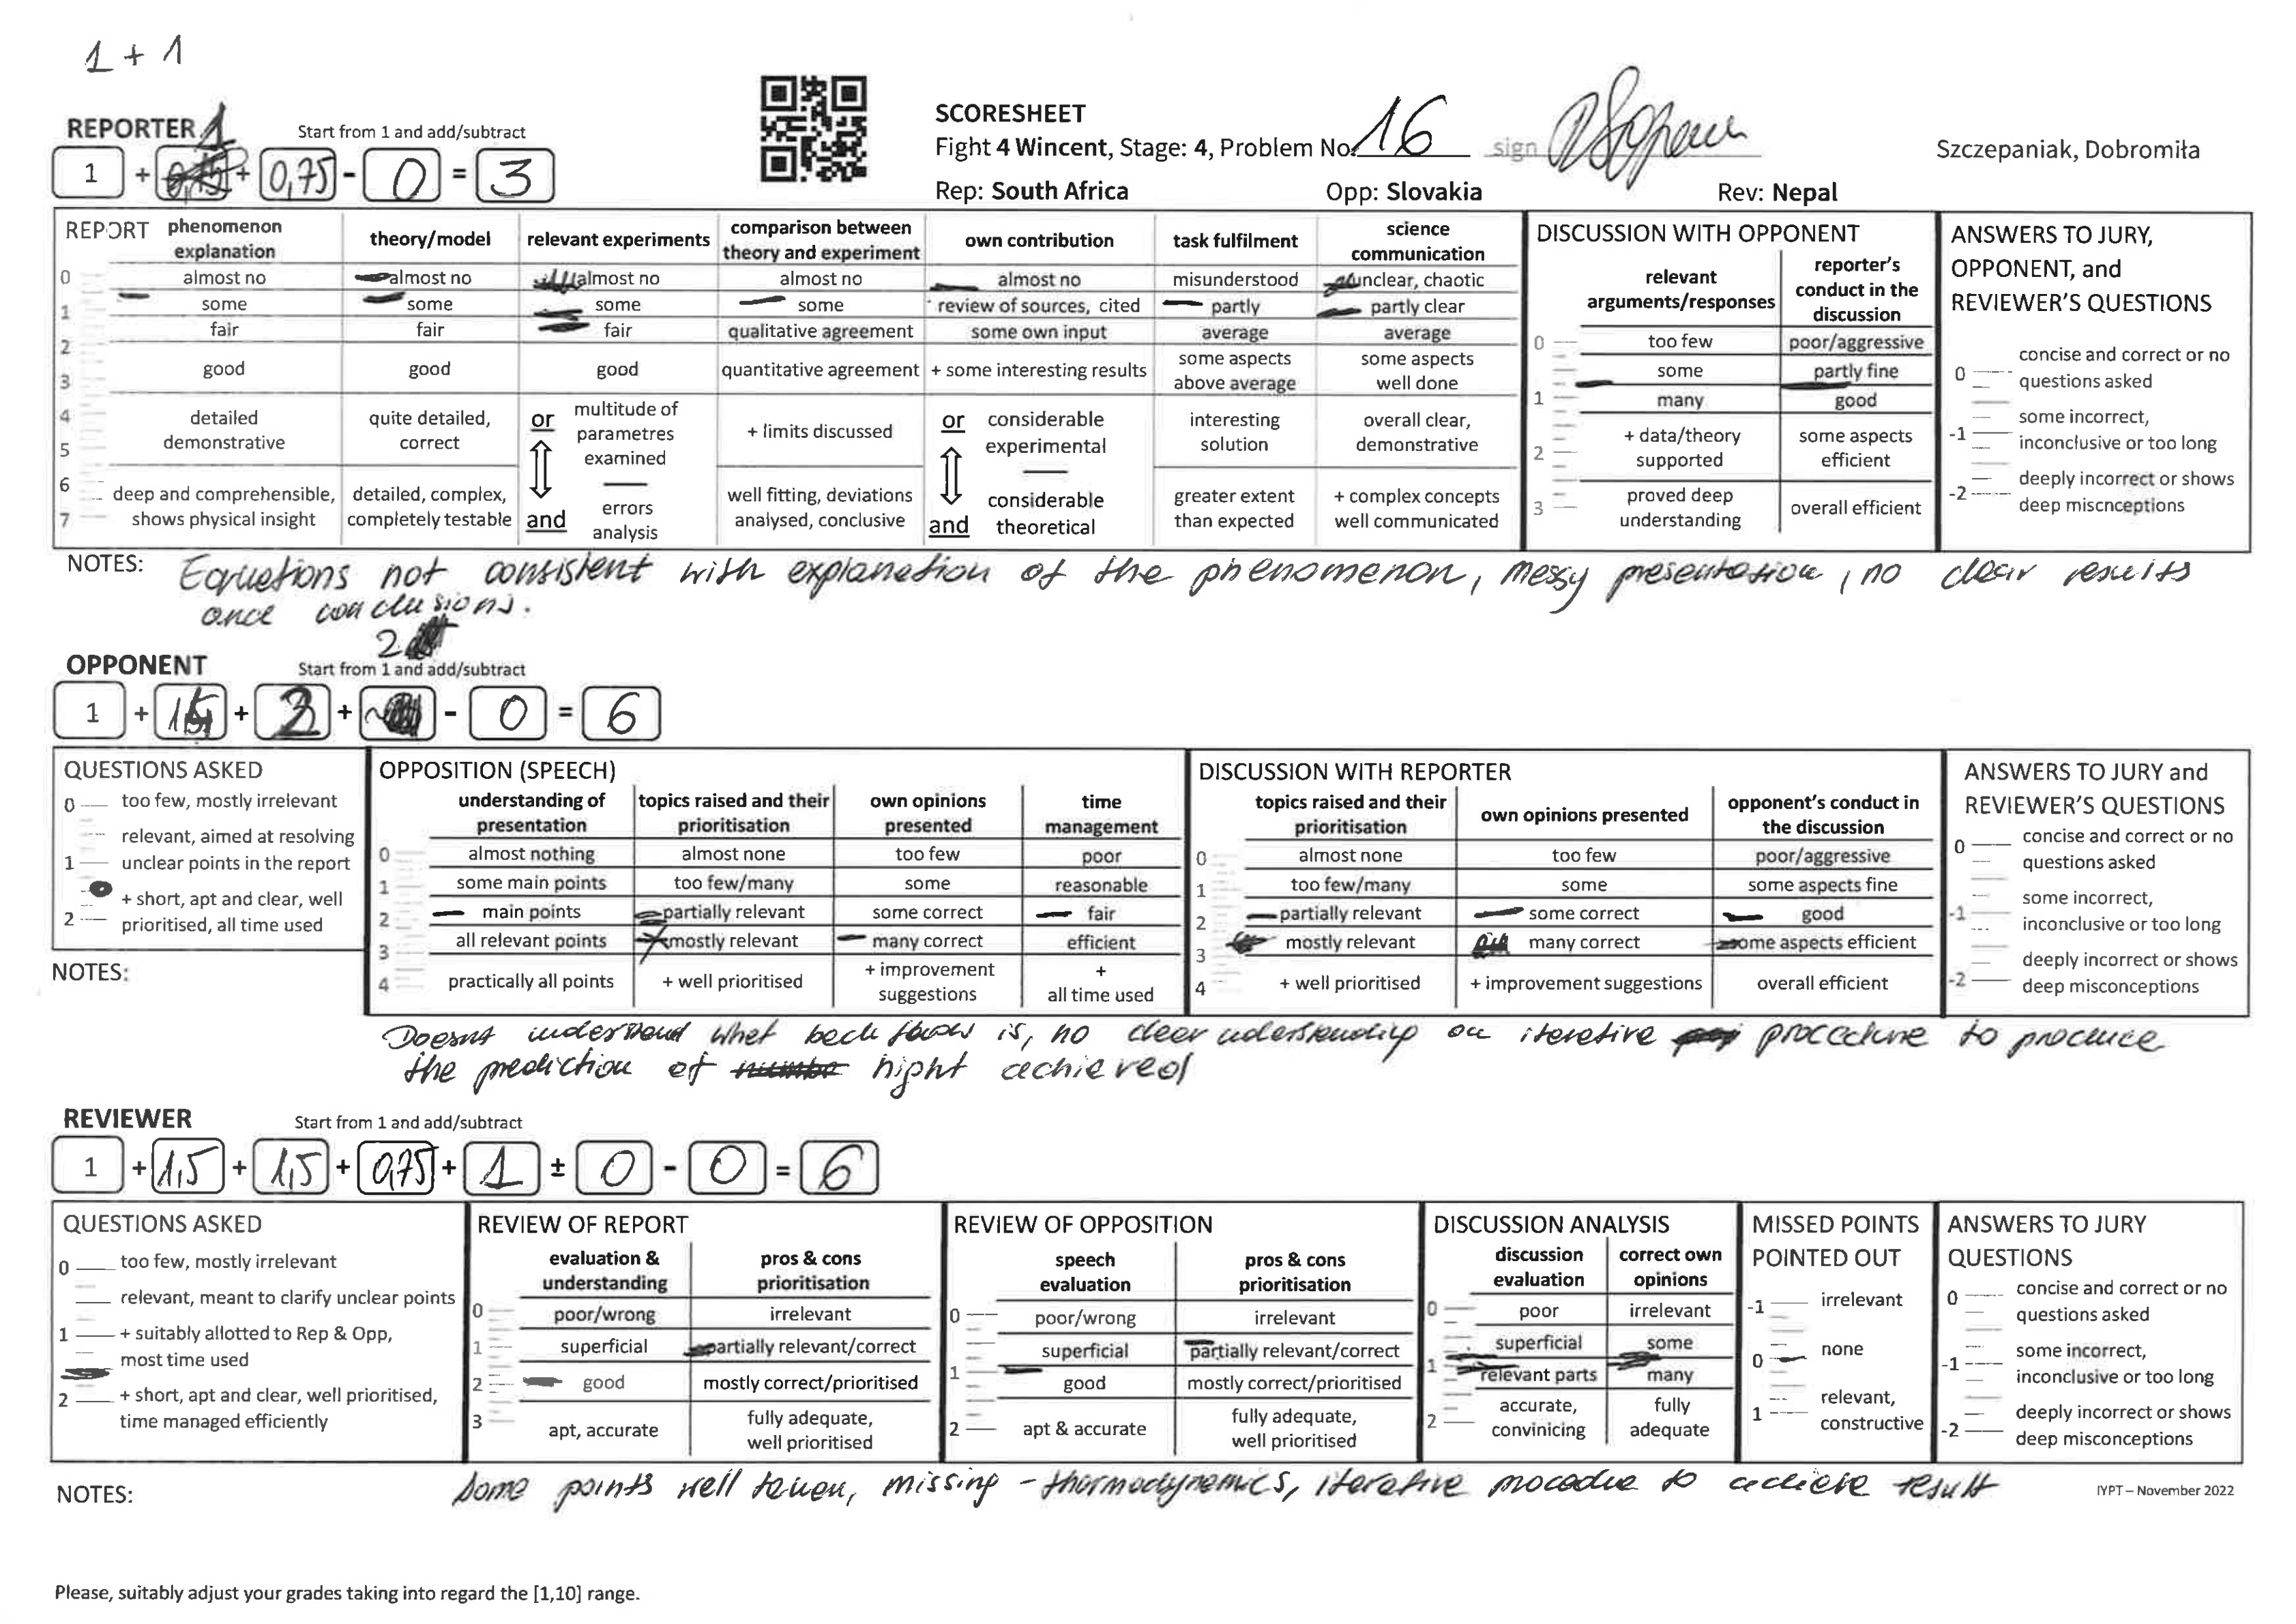 1 + 1
REPORTER 1 Start from 1 and add/subtract
1 + + 0,75 - 0 = 3
SCORESHEET
Fight 4 Wincent, Stage: 4, Problem No. 16 sign
Szczepaniak, Dobromiła
Rep: South Africa Opp: Slovakia Rev: Nepal
REPORT
phenomenon explanation
theory/model
relevant experiments
comparison between theory and experiment
own contribution
task fulfilment
science communication
0 almost no almost no almost no almost no almost no misunderstood unclear, chaotic
1 some some some some review of sources, cited partly partly clear
2 fair fair fair qualitative agreement some own input average average
3 good good good quantitative agreement + some interesting results some aspects above average some aspects well done
4 5 detailed demonstrative quite detailed, correct or multitude of parametres examined + limits discussed or considerable experimental interesting solution overall clear, demonstrative
6 7 deep and comprehensible, shows physical insight detailed, complex, completely testable and errors analysis well fitting, deviations analysed, conclusive and considerable theoretical greater extent than expected + complex concepts well communicated
DISCUSSION WITH OPPONENT
relevant arguments/responses
reporter's conduct in the discussion
0 too few poor/aggressive
some partly fine
1 many good
2 + data/theory supported some aspects efficient
3 proved deep understanding overall efficient
ANSWERS TO JURY,
OPPONENT, and
REVIEWER'S QUESTIONS
0 concise and correct or no questions asked
-1 some incorrect, inconclusive or too long
-2 deeply incorrect or shows deep miscnceptions
NOTES: Equations not consistent with explanation of the phenomenon, messy presentation, no clear results
once conclusions.
2
OPPONENT Start from 1 and add/subtract
1 + 1,5 + 2 + - 0 = 6
QUESTIONS ASKED
0 too few, mostly irrelevant
relevant, aimed at resolving
1 unclear points in the report
+ short, apt and clear, well
2 prioritised, all time used
NOTES:
OPPOSITION (SPEECH)
understanding of presentation
topics raised and their prioritisation
own opinions presented
time management
0 almost nothing almost none too few poor
1 some main points too few/many some reasonable
2 main points partially relevant some correct fair
3 all relevant points mostly relevant many correct efficient
4 practically all points + well prioritised + improvement suggestions + all time used
DISCUSSION WITH REPORTER
topics raised and their prioritisation
own opinions presented
opponent's conduct in the discussion
0 almost none too few poor/aggressive
1 too few/many some some aspects fine
2 partially relevant some correct good
3 mostly relevant many correct some aspects efficient
4 + well prioritised + improvement suggestions overall efficient
ANSWERS TO JURY and
REVIEWER'S QUESTIONS
0 concise and correct or no questions asked
-1 some incorrect, inconclusive or too long
-2 deeply incorrect or shows deep misconceptions
Doesnt understand what back is, no clear understanding on iterative procedure to produce
the prediction of hight achieved
REVIEWER Start from 1 and add/subtract
1 + 1,5 + 1,5 + 0,75 + 1 ± 0 - 0 = 6
QUESTIONS ASKED
0 too few, mostly irrelevant
relevant, meant to clarify unclear points
1 + suitably allotted to Rep & Opp,
most time used
2 + short, apt and clear, well prioritised,
time managed efficiently
REVIEW OF REPORT
evaluation & understanding
pros & cons prioritisation
0 poor/wrong irrelevant
1 superficial partially relevant/correct
2 good mostly correct/prioritised
3 apt, accurate fully adequate, well prioritised
REVIEW OF OPPOSITION
speech evaluation
pros & cons prioritisation
0 poor/wrong irrelevant
superficial partially relevant/correct
1 good mostly correct/prioritised
2 apt & accurate fully adequate, well prioritised
DISCUSSION ANALYSIS
discussion evaluation
correct own opinions
0 poor irrelevant
superficial some
1 relevant parts many
2 accurate, convinicing fully adequate
MISSED POINTS
POINTED OUT
-1 irrelevant
0 none
1 relevant, constructive
ANSWERS TO JURY
QUESTIONS
0 concise and correct or no questions asked
-1 some incorrect, inconclusive or too long
-2 deeply incorrect or shows deep misconceptions
NOTES: Some points well taken, missing - thermodynamics, iterative procedue to achieve result
IYPT – November 2022
Please, suitably adjust your grades taking into regard the [1,10] range.